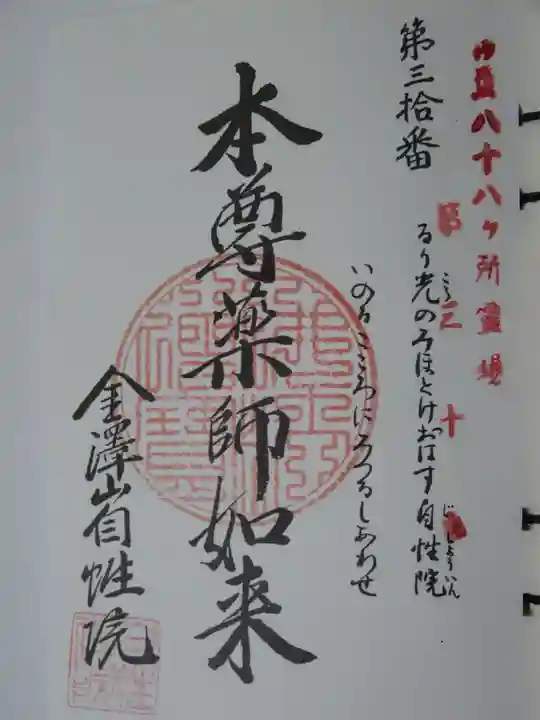 八十八ヶ所霊場
第三十
第三拾番
るり光のみほとけおはす自性院
じしょういん
いのるこころにうつるしあわせ
本尊薬師如来
金澤山自性院